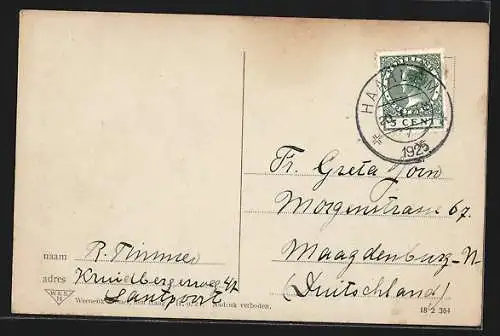 NEDERLAND
5 CENT
HAARLEM
1925
Fr. Greta Jorn
Morgenstrasse 67.
Maagdenburg-N
(Duitschland)
naam R. Timmer
adres Kruidbergerweg 42
Santpoort
Nadruk verboden.
18 2 364